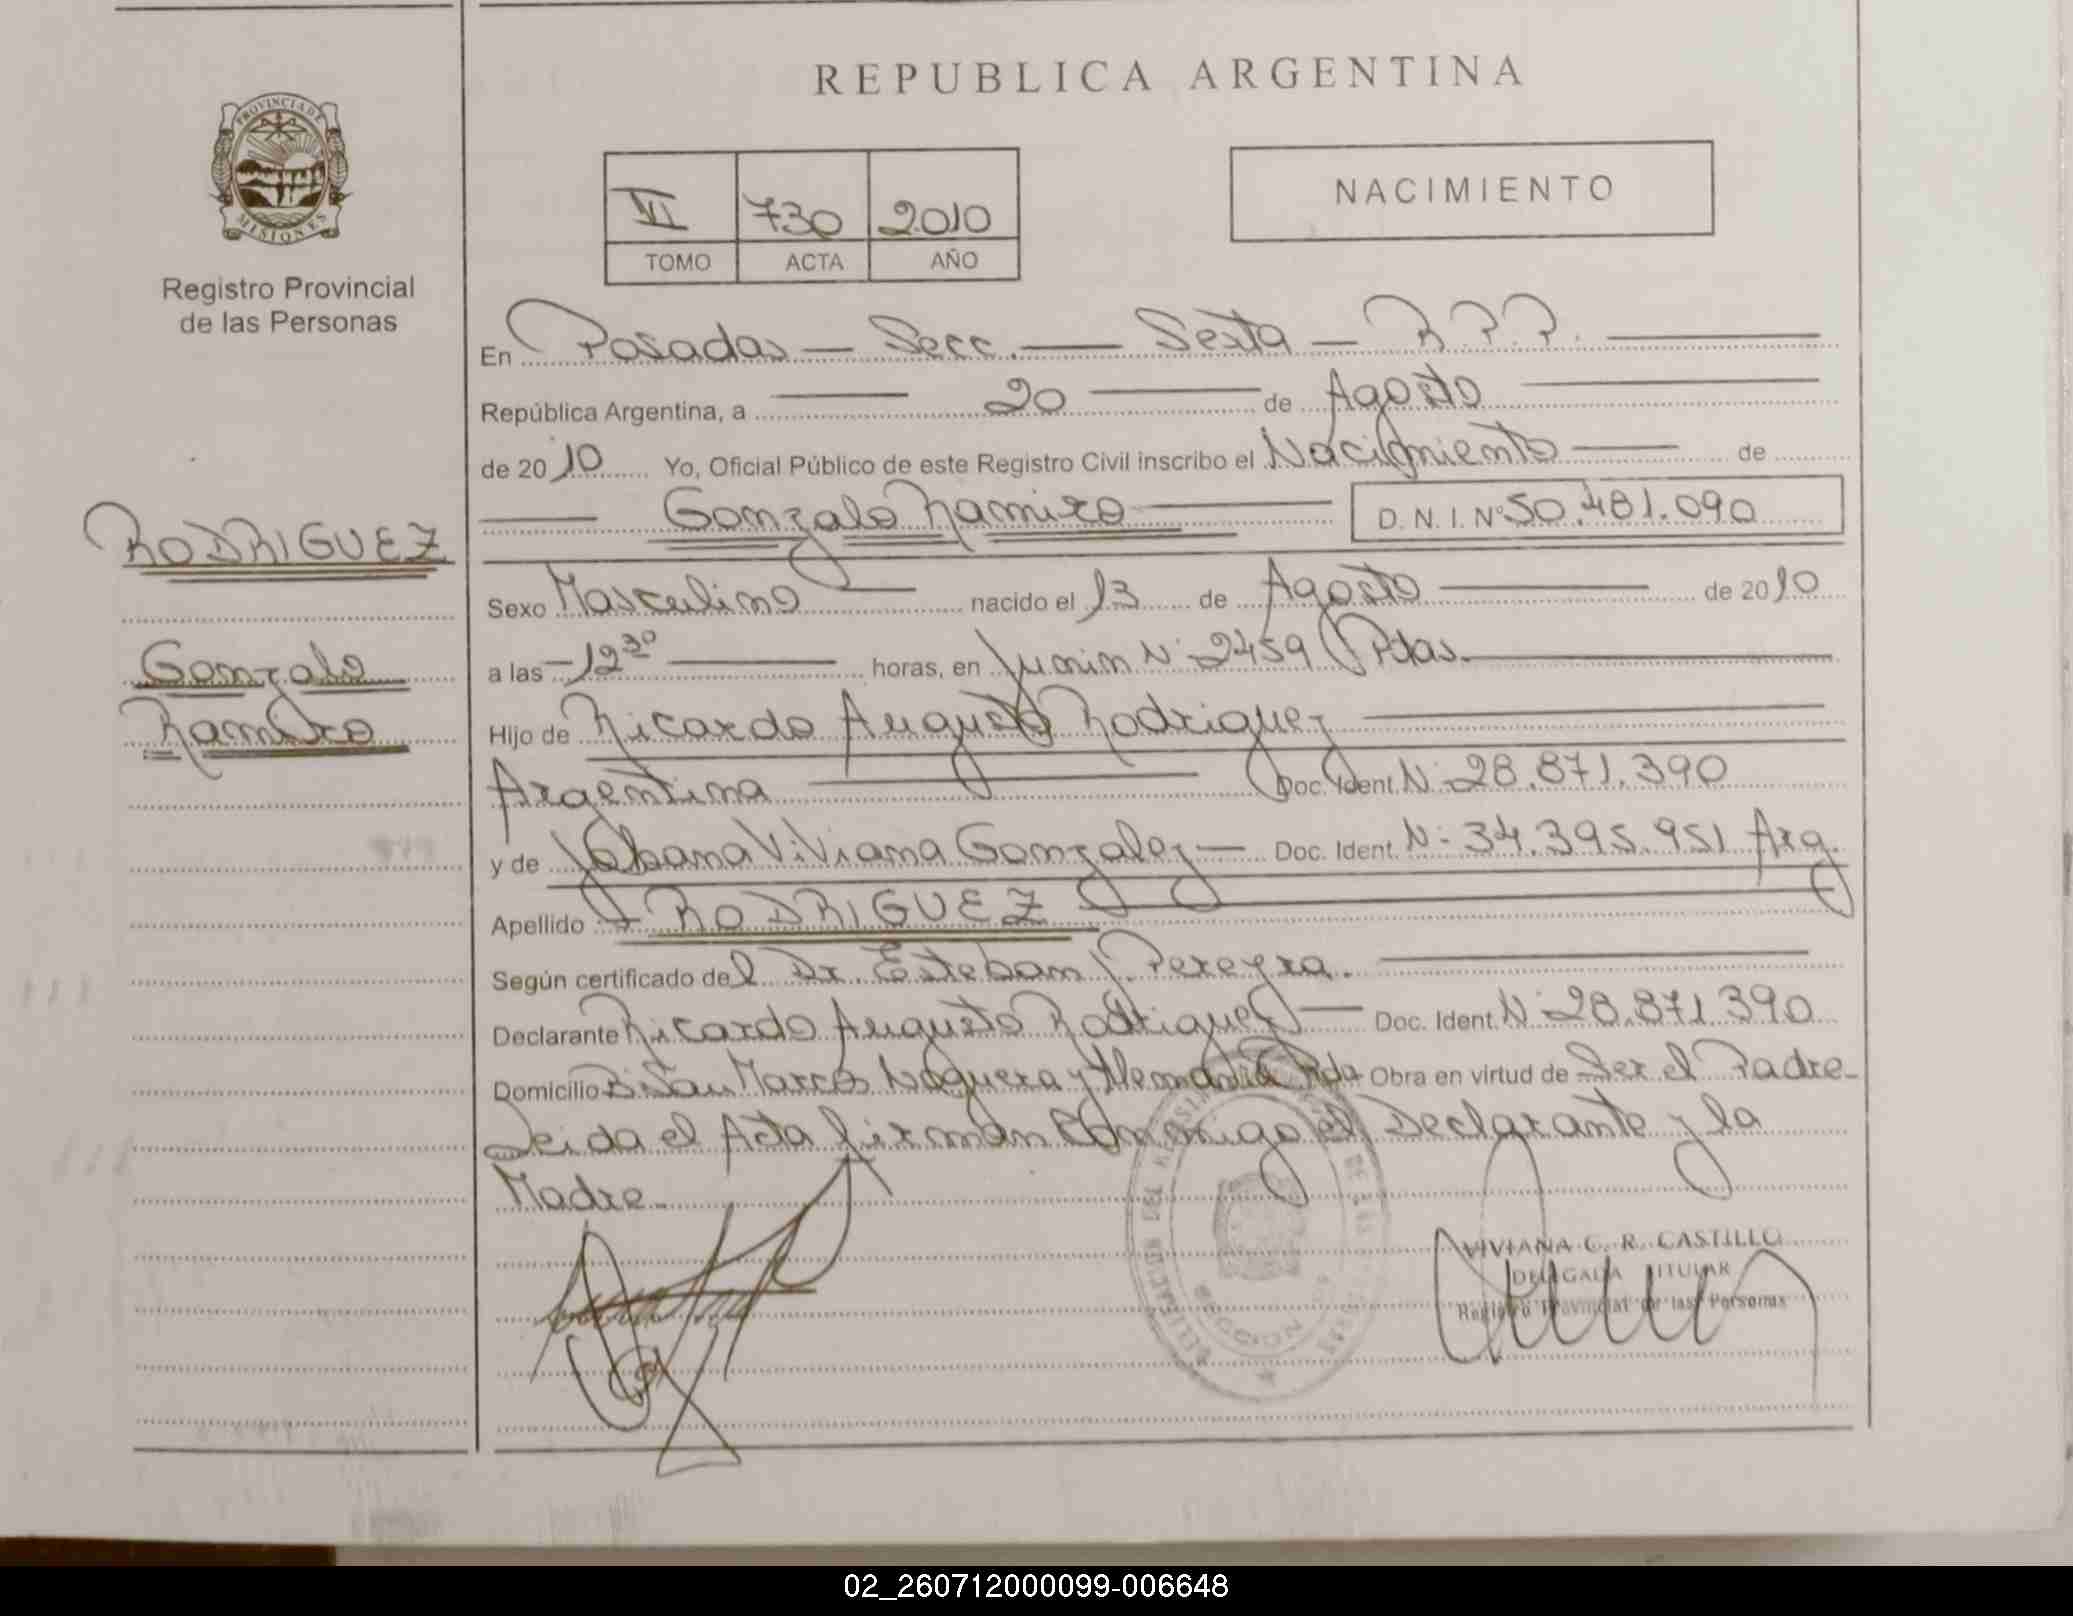 REPUBLICA ARGENTINA
PROVINCIA DE
MISIONES
Registro Provincial
de las Personas
VI 730 2010
TOMO ACTA AÑO
NACIMIENTO
En Posadas — Secc. — Sexta — R.P.P.
República Argentina, a — 20 — de Agosto
de 2010 Yo, Oficial Público de este Registro Civil inscribo el Nacimiento — de
— Gonzalo Ramiro — D. N. I. Nº 50.481.090
RODRIGUEZ
Gonzalo
Ramiro
Sexo Masculino — nacido el 13 de Agosto — de 2010
a las — 12 30 — horas, en Junin Nº 2459 Pdas.
Hijo de Ricardo Augusto Rodriguez
Argentina — Doc. Ident. Nº 28.871.390
y de Viviana Gonzalez — Doc. Ident. Nº 34.395.951 Arg.
Apellido : RODRIGUEZ
Según certificado del Dr. Esteban J. Pereyra.
Declarante Ricardo Augusto Rodriguez — Doc. Ident. Nº 28.871.390
Domicilio Bº San Marcos Noguera y Alemania Pda Obra en virtud de Ser el Padre-
Leida el Acta firman Conmigo el Declarante y la
Madre-
VIVIANA C. R. CASTILLO
DELEGADA TITULAR
Registro Provincial de las Personas
SECCION
02_260712000099-006648